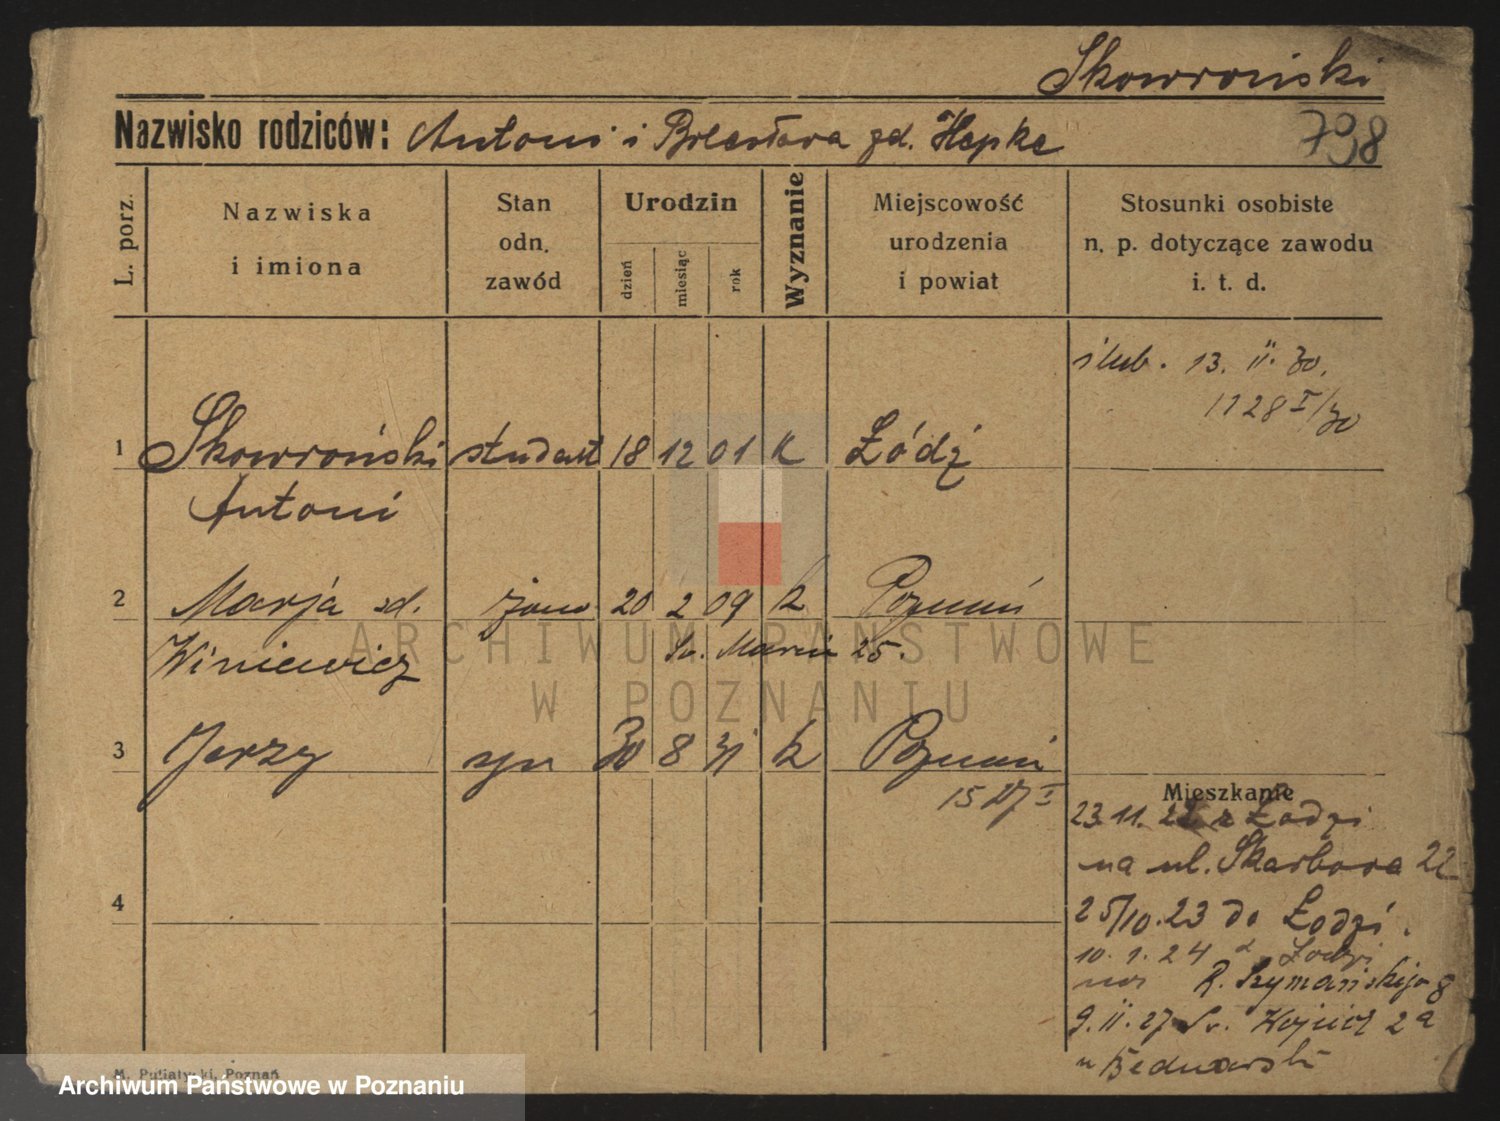 Skowroński
Nazwisko rodziców: Antoni i Bolesława zd. Hepke
798
L. porz.
Nazwiska
i imiona
Stan
odn.
zawód
Urodzin
dzień
miesiąc
rok
Wyznanie
Miejscowość
urodzenia
i powiat
Stosunki osobiste
n. p. dotyczące zawodu
i. t. d.
ślub. 13. II. 30.
1128 I/30
1 Skowroński student 18 12 01 k Łódź
Antoni
2 Marja zd. żona 20 2 09 k Poznań
Winiewicz Św. Marcin 25.
3 Jerzy syn 30 8 31 k Poznań
15
4
Mieszkanie
23.11.22 z Łodzi
na ul. Skarbowa 22
25/10.23 do Łodzi.
10.1.24 z Łodzi
R. Szymańskiego 8
9.II.27 Św. Wojciech 2a
u Bednarski
M. Putiatycki, Poznań
ARCHIWUM PAŃSTWOWE
W POZNANIU
Archiwum Państwowe w Poznaniu